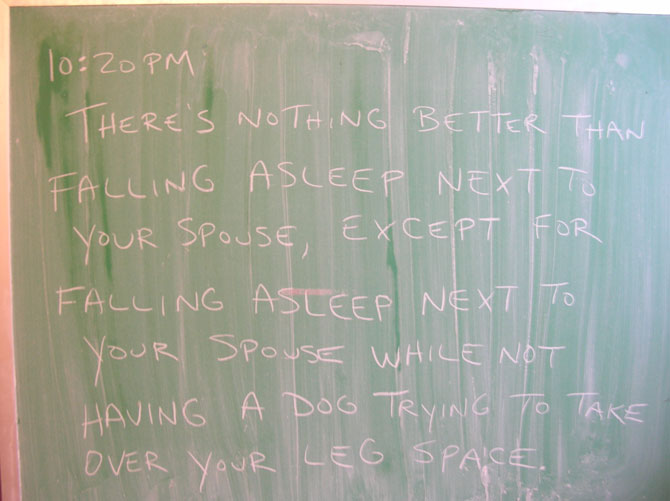 10:20PM
THERE'S NOTHING BETTER THAN
FALLING ASLEEP NEXT TO
YOUR SPOUSE, EXCEPT FOR
FALLING ASLEEP NEXT TO
YOUR SPOUSE WHILE NOT
HAVING A DOG TRYING TO TAKE
OVER YOUR LEG SPACE.